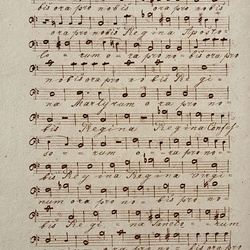 ora pro nobis ora pro nobis
ora pro nobis Regina Aposto-
lorum ora pro nobis ora pro
nobis ora pro nobis Regi-
na Martyrum ora pro no-
bis Regina Regina Confes-
sorum ora pro no-
bis Regina Regina Virgi-
num ora pro nobis pro no-
bis Regina Sanctorum
ora pro nobis ora pro